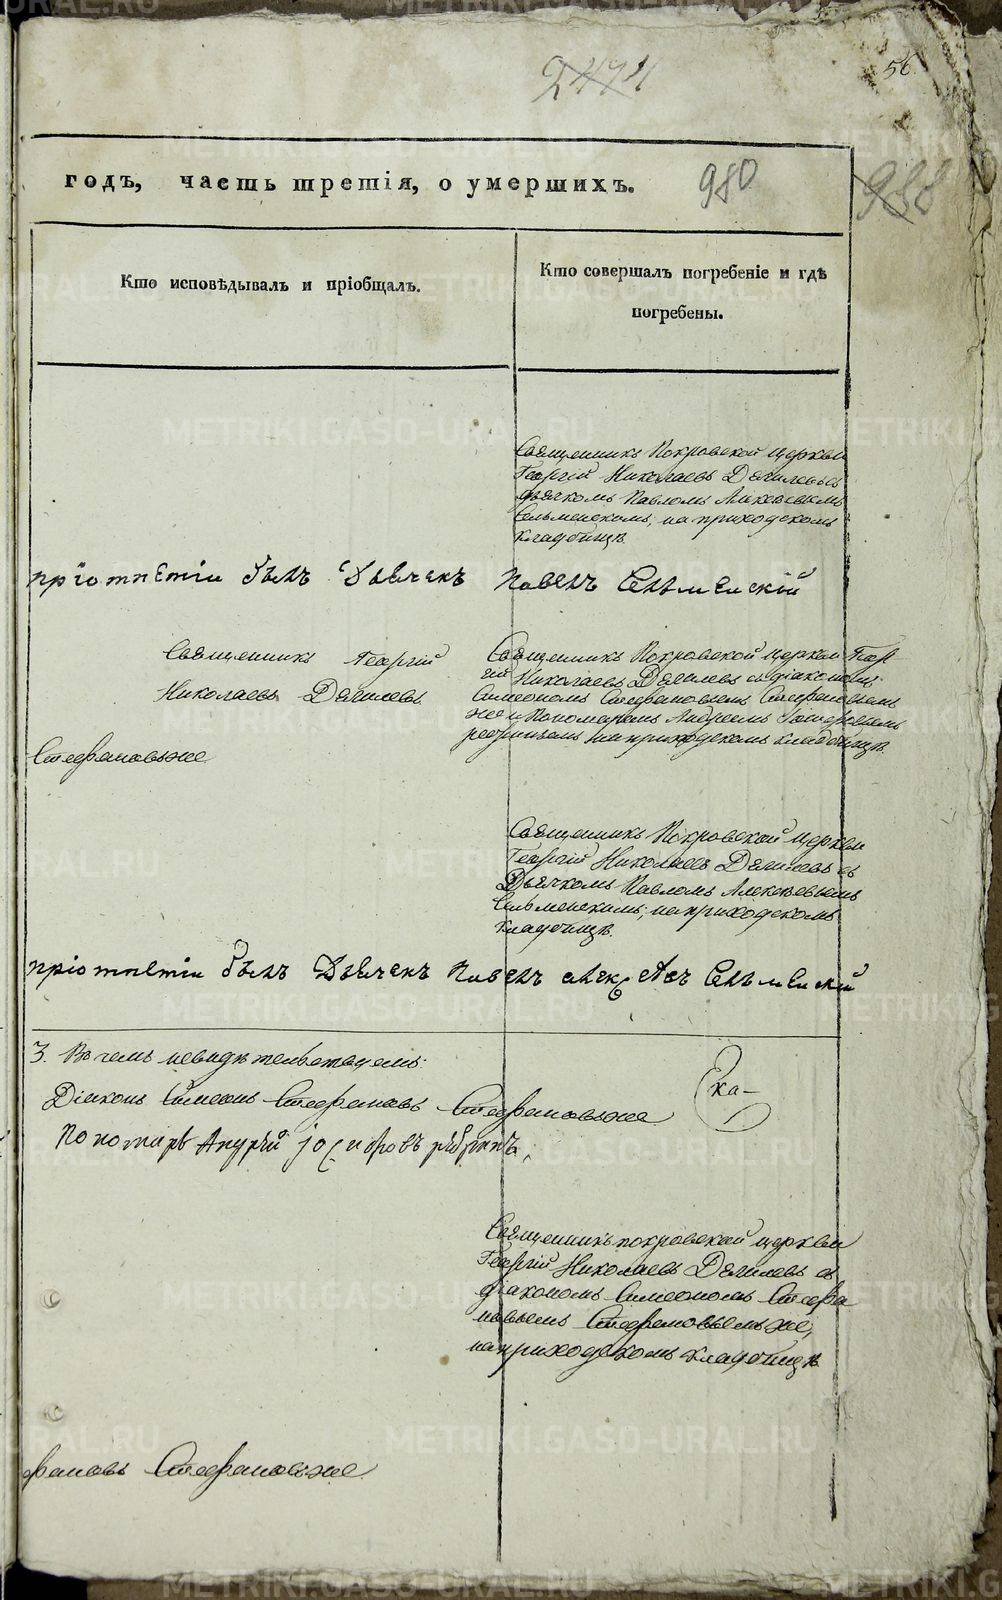 2474
56
годъ, часть третія, о умершихъ.
980
988
Кто исповѣдывалъ и пріобщалъ.
Кто совершалъ погребеніе и гдѣ
погребены.
Священникъ Покровской церкви
Георгій Николаевъ Дягилевъ съ
дьячкомъ Павломъ Алексѣевымъ
Сельменскомъ, на приходскомъ
кладбищѣ.
при отпетіи былъ Дьячекъ Павелъ Сельменскій
Священникъ Георгій
Николаевъ Дягилевъ
Священникъ Покровской церкви Геор-
гій Николаевъ Дягилевъ съ діакономъ
Симеономъ Стефановымъ Стефановымъ
же и Пономаремъ Андреемъ
на приходскомъ кладбищѣ
Стефановъ же
Священникъ Покровской церкви
Георгій Николаевъ Дягилевъ съ
Дьячкомъ Павломъ Алексѣевымъ
Сельменскимъ, на приходскомъ
кладбищѣ.
при отпетіи былъ Дьячекъ Павелъ Сельменскій
3. Въ чемъ и свидѣтельствуемъ:
Діаконъ Симеонъ Стефановъ Стефановъ же
ка-
Пономарь Андрей Іосифовъ
Священникъ покровской церкви
Георгій Николаевъ Дягилевъ съ
діакономъ Симеономъ Стефа
новымъ Стефановымъ же,
на приходскомъ кладбищѣ
фановъ Стефановъ же
METRIKI.GASO-URAL.RU